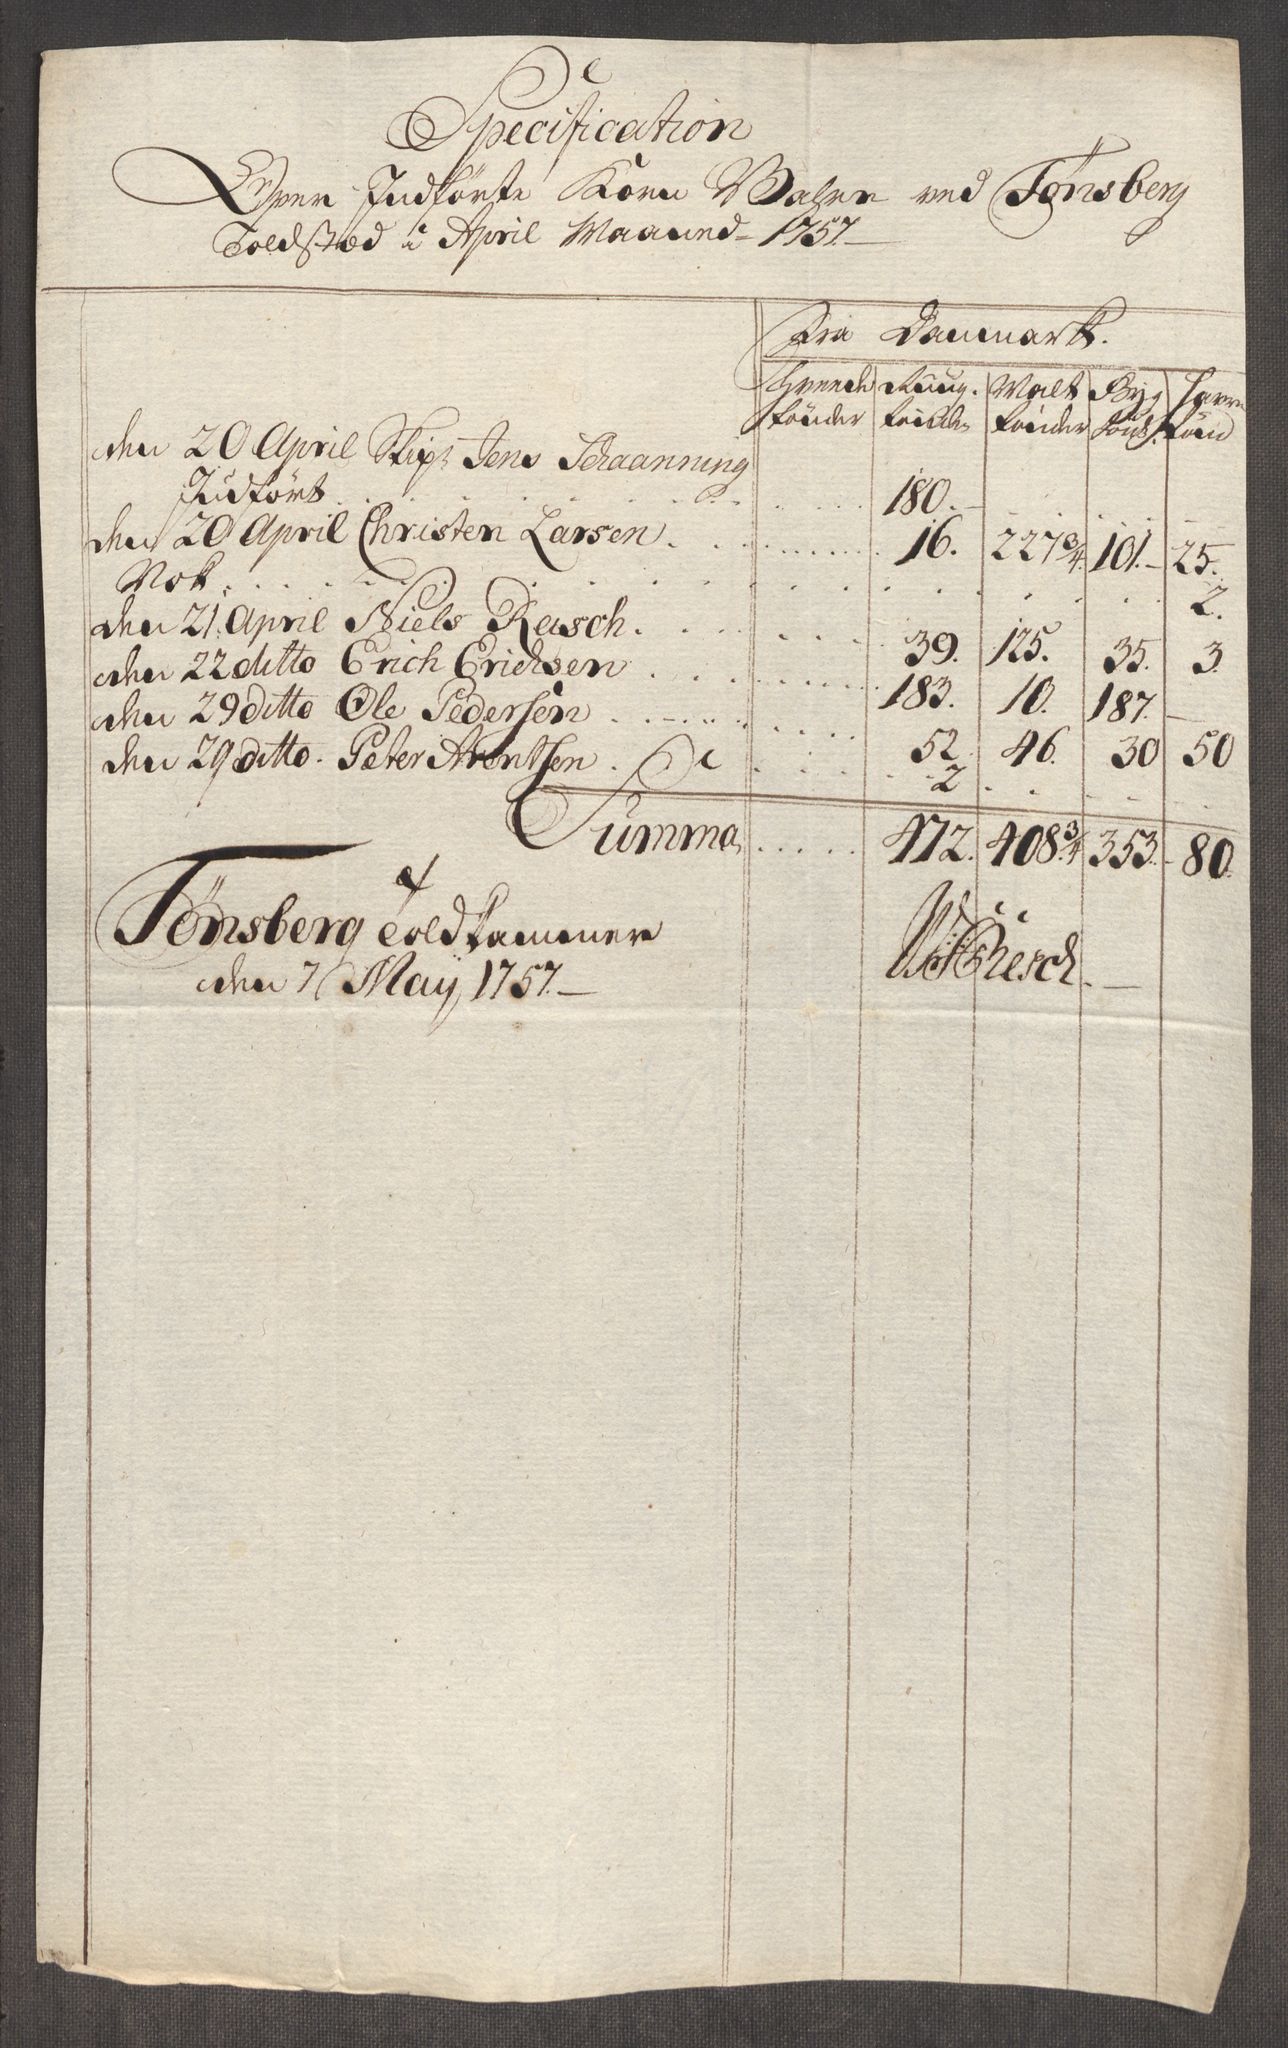 Specification
Over Indførte Korn Wahre ved Tønsberg
Toldstæd i April Maaned 1757.
Fra Danmark.
Hveede Tønder | Ruug Tønder | Malt Tønder | Byg Tønd. | Havre Tønd
den 20 April Skipr Jens Schaanning
Indført 180.
den 20 April Christen Larsen 16. 227 3/4. 101. 25.
Nok 2.
den 21. April Niels Rasch. 39. 125. 35. 3.
den 22 ditto Erich Erichsen 183. 10. 187.
den 29 ditto Ole Pedersen 52. 46. 30 50
den 29 ditto. Peter Arentsen. 2
Summa 472. 408 3/4 353. 80.
Tønsberg Toldkammer
den 7 Maÿ 1757.
Resch.